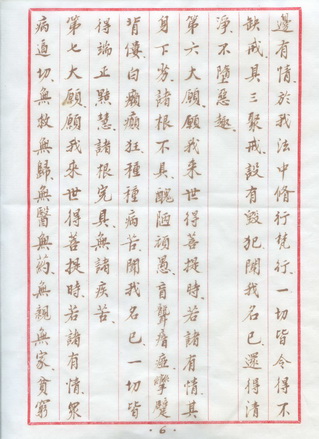 邊有情、於我法中修行梵行、一切皆令得不
缺戒、具三聚戒、設有毀犯、聞我名已、還得清
淨、不墮惡趣、
第六大願、願我來世得菩提時、若諸有情、其
身下劣、諸根不具、醜陋頑愚、盲聾瘖瘂、攣躄
背僂、白癩癲狂、種種病苦、聞我名已、一切皆
得端正黠慧、諸根完具、無諸疾苦、
第七大願、願我來世得菩提時、若諸有情、眾
病逼切、無救無歸、無醫無藥、無親無家、貧窮
·6·